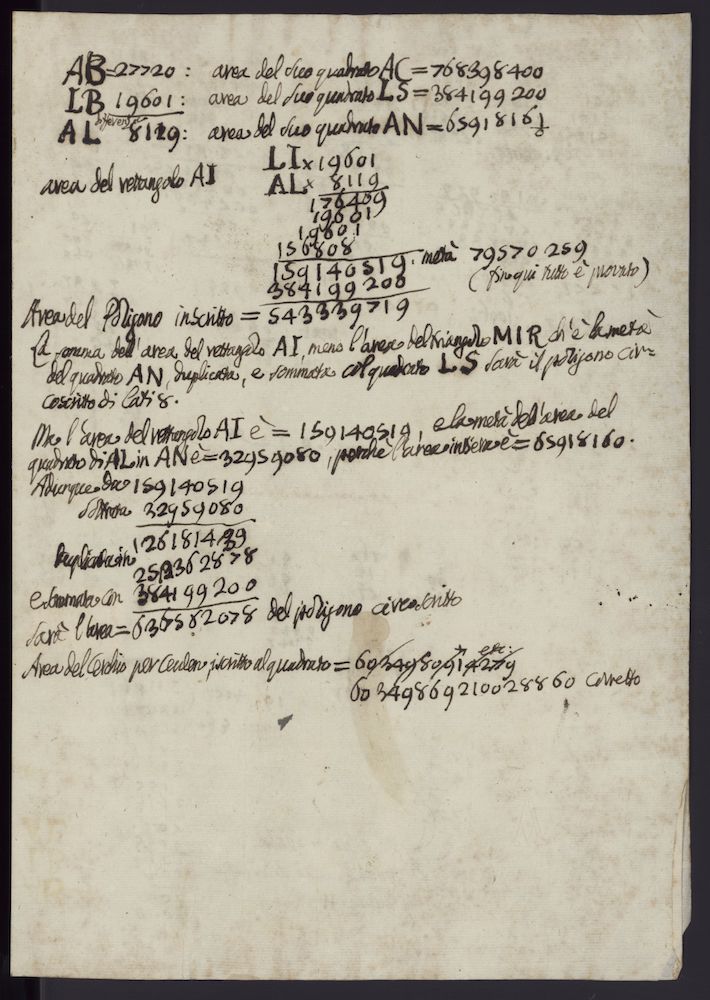 AB=27720: area del suo quadrato AC=768398400
LB 19601: area del suo quadrato LS=384199200
AL differenza 8119: area del suo quadrato AN=65918161
area del rettangolo AI
LI × 19601
AL × 8119
176409
19601
19601
156808
159140519. metà 79570259
384199200 (fin qui tutto è provato)
Area del Poligono inscritto = 543339719
La somma dell'area del rettangolo AI, meno l'area del triangolo MIR ch'è la metà
del quadrato AN, duplicata, e sommata col quadrato LS sarà il poligono cir=
coscritto di lati 8.
Ma l'area del rettangolo AI è = 159140519, e la metà dell'area del
quadrato di AL in AN è = 32959080, perchè l'area intiera è = 65918160.
Adunque da 159140519
sottratta 32959080
126181439
Duplicata in 252362878
e sommata con 384199200
sarà l'area = 636562078 del poligono circoscritto
Area del Cerchio per Ceulen iscritto al quadrato = 
60349869210028860 corretto